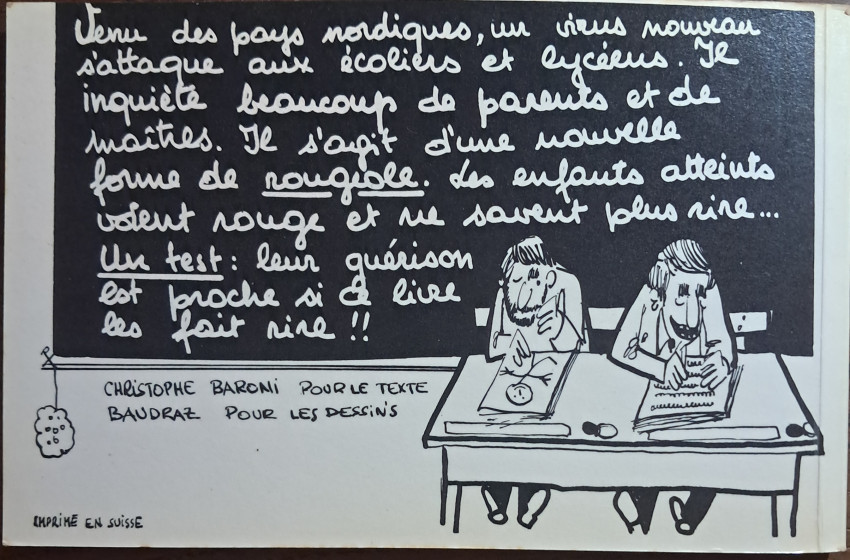 Venu des pays nordiques, un virus nouveau
s'attaque aux écoliers et lycéens. Il
inquiète beaucoup de parents et de
maîtres. Il s'agit d'une nouvelle
forme de rougeole. Les enfants atteints
voient rouge et ne savent plus rire...
Un test : leur guérison
est proche si ce livre
les fait rire !!
CHRISTOPHE BARONI POUR LE TEXTE
BAUDRAZ POUR LES DESSINS
IMPRIMÉ EN SUISSE